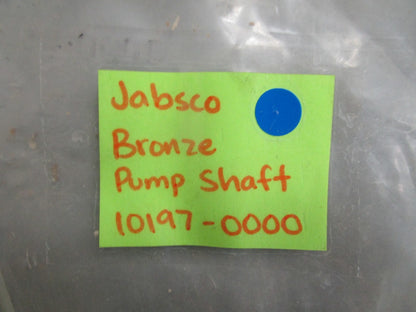 Jabsco
Bronze
Pump Shaft
10197-0000